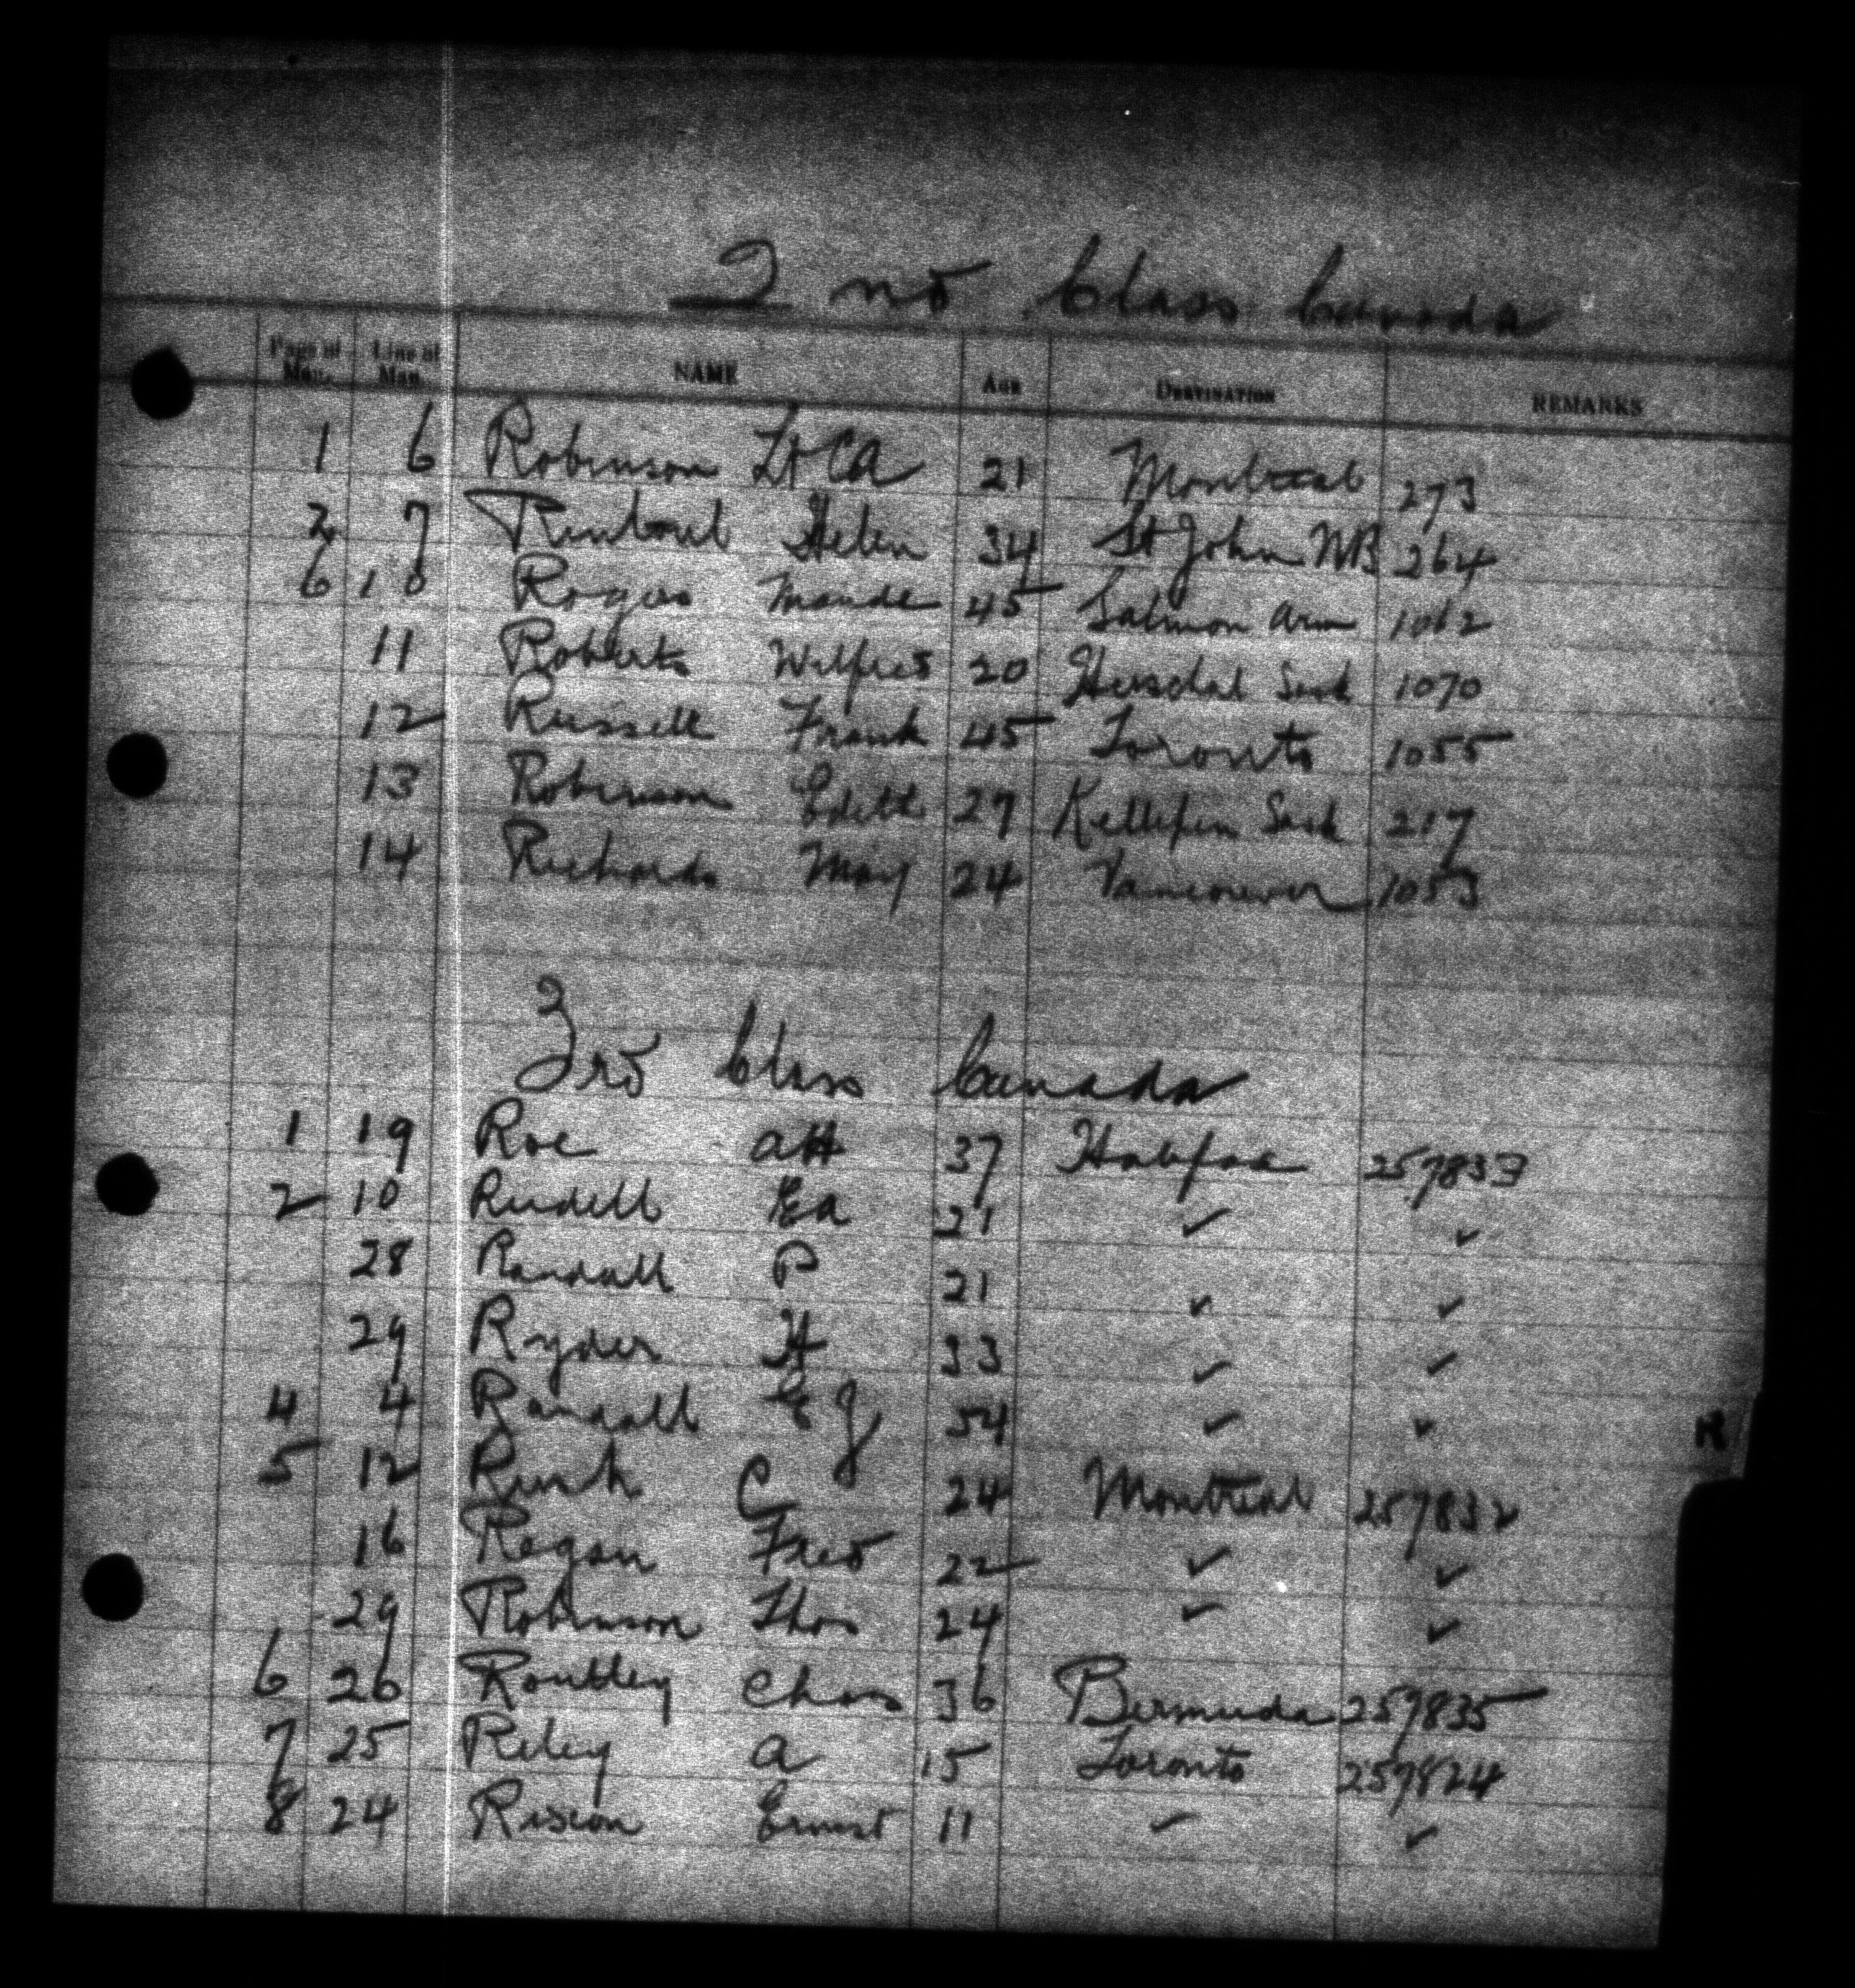 2nd Class Canada
Page of Man. Line of Man. NAME AGE DESTINATION REMARKS
1 6 Robinson Lt CA 21 Montreal 273
2 7 Helen 34 St John NB 264
6 10 Rogers Maude 45 Salmon Arm 1062
11 Roberts Wilfred 20 Herschal Sask 1070
12 Russell Frank 45 Toronto 1055
13 Robinson Edith 27 Sask 217
14 Richards May 24 Vancouver 1053
3rd Class Canada
1 19 Roe AH 37 Halifax 257833
2 10 Rudell EA 21 ✓ ✓
28 Randall P 21 ✓ ✓
29 Ryder H 33 ✓ ✓
4 4 Randall J 34 ✓ ✓
R
5 12 C 24 Montreal 257832
16 Regan Fred 22 ✓ ✓
29 Robinson Thos 24 ✓ ✓
6 26 Routley Chas 36 Bermuda 257835
7 25 Riley A 15 Toronto 257824
8 24 Ernest 11 ✓ ✓